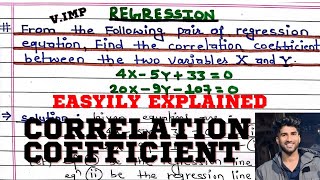 V.IMP
REGRESSION
From the Following pair of regression
equation, Find the correlation coefficient
between the two variables X and Y.
4X-5Y+33=0
20X-9Y-107=0
EASYILY EXPLAINED
solution
CORRELATION
COEFFICIENT
eqⁿ (ii) be the regression line